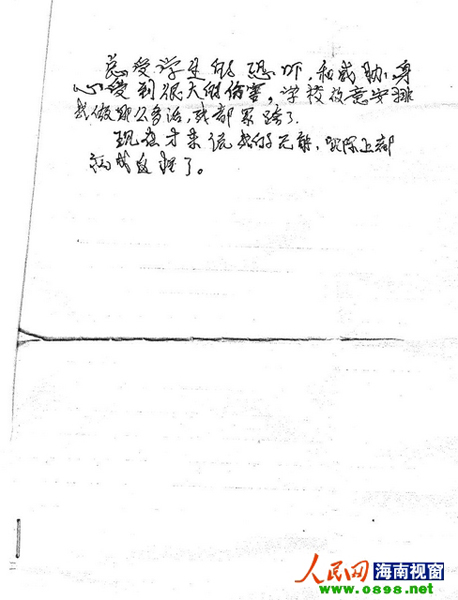 总受学生的恐吓,和威胁,身
心受到很大的伤害,学校故意安排
我做那么多活,我都累跨了.
现在才来说我的无能,实际上都
了。
人民网 海南视窗
www.0898.net